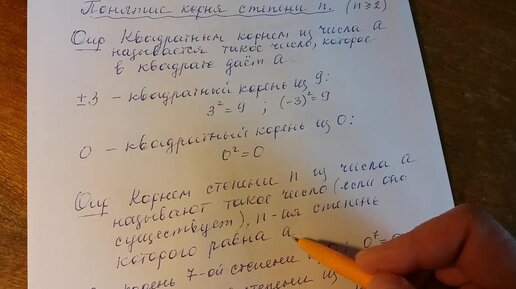 Понятие корня степени n. (n ≥ 2)
Опр Квадратным корнем из числа a
называется такое число, которое
в квадрате даёт a.
±3 – квадратный корень из 9:
3² = 9 ; (-3)² = 9
0 – квадратный корень из 0:
0² = 0
Опр Корнем степени n из числа a
называют такое число (если оно
существует), n-ая степень
которого равна a.
корень 7-ой степени из 0: 0⁷ =
степени из